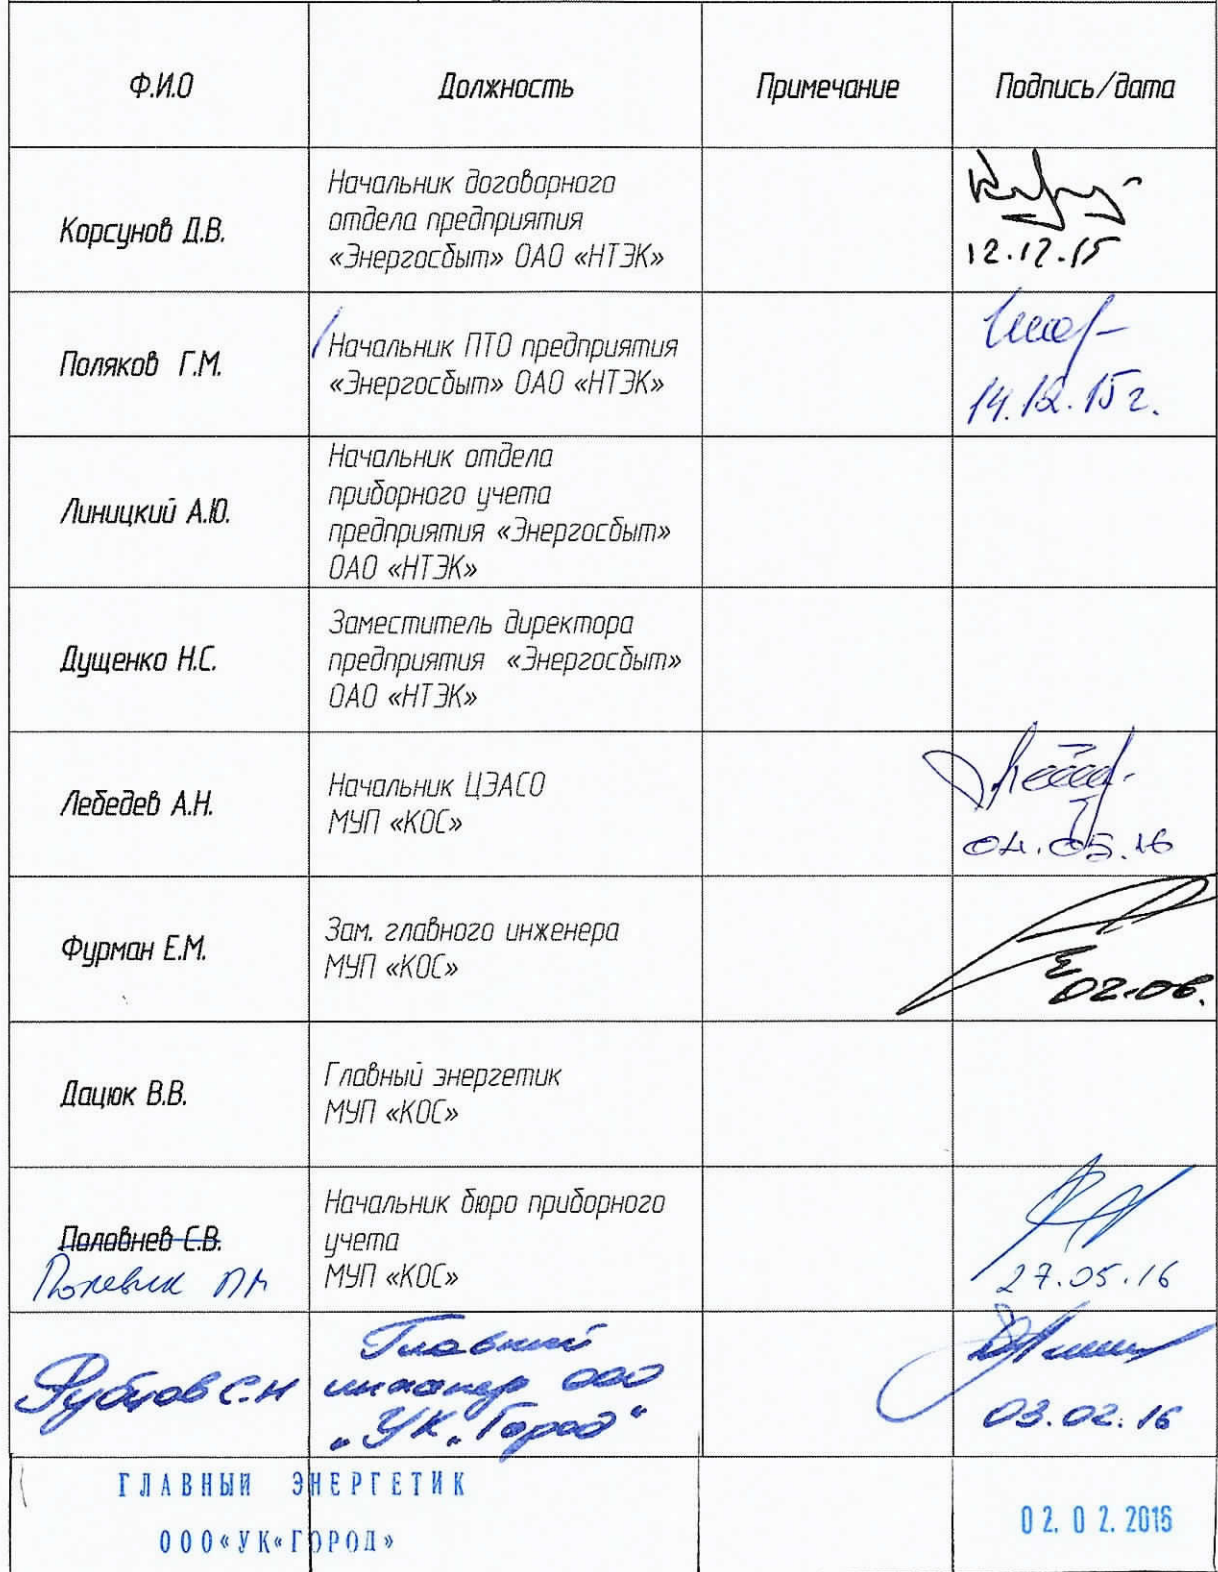 Ф.И.О Должность Примечание Подпись/дата
Корсунов Д.В.
Начальник договорного
отдела предприятия
«Энергосбыт» ОАО «НТЭК»
12.12.15
Поляков Г.М.
Начальник ПТО предприятия
«Энергосбыт» ОАО «НТЭК»
14.12.15 г.
Линицкий А.Ю.
Начальник отдела
приборного учета
предприятия «Энергосбыт»
ОАО «НТЭК»
Дущенко Н.С.
Заместитель директора
предприятия «Энергосбыт»
ОАО «НТЭК»
Лебедев А.Н.
Начальник ЦЭАСО
МУП «КОС»
04.05.16
Фурман Е.М.
Зам. главного инженера
МУП «КОС»
02.06.
Дацюк В.В.
Главный энергетик
МУП «КОС»
Половнев С.В.
Начальник бюро приборного
учета
МУП «КОС»
27.05.16
Рубцов С.Н
Главный
инженер ООО
"УК "Город"
03.02.16
ГЛАВНЫЙ ЭНЕРГЕТИК
ООО«УК«ГОРОД»
02. 02. 2016